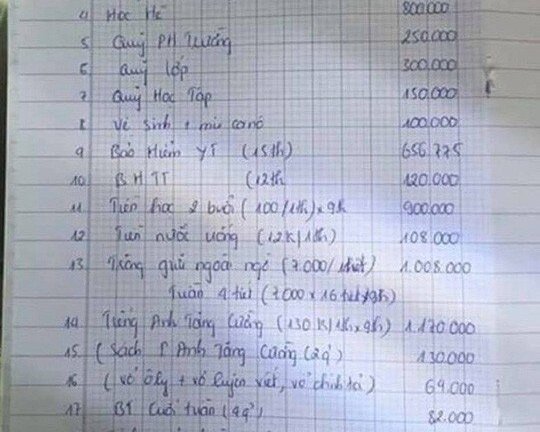 4 Học Hè 800.000
5 Quỹ PH Trường 250.000
6 Quỹ lớp 300.000
7 Quỹ Học Tập 150.000
8 Vệ sinh + 100.000
9 Bảo Hiểm YT (15th) 656.775
10 BHTT (12th 120.000
11 Tiền học 2 buổi (100/1th) x 9th 900.000
12 Tiền nước uống (12K/1th) 108.000
13 Trông giữ ngoài ngỏ (7.000/1tiết) 1.008.000
Tuần 4 tiết (7000 x 16 tiết/9th)
14 Tiếng Anh Tăng Cường (130K/1th x 9th) 1.170.000
15 (Sách T Anh Tăng Cường (2q) 130.000
16 (vở ôly + vở luyện viết, vở chính tả) 64.000
17 BT Cuối tuần (4q) 82.000